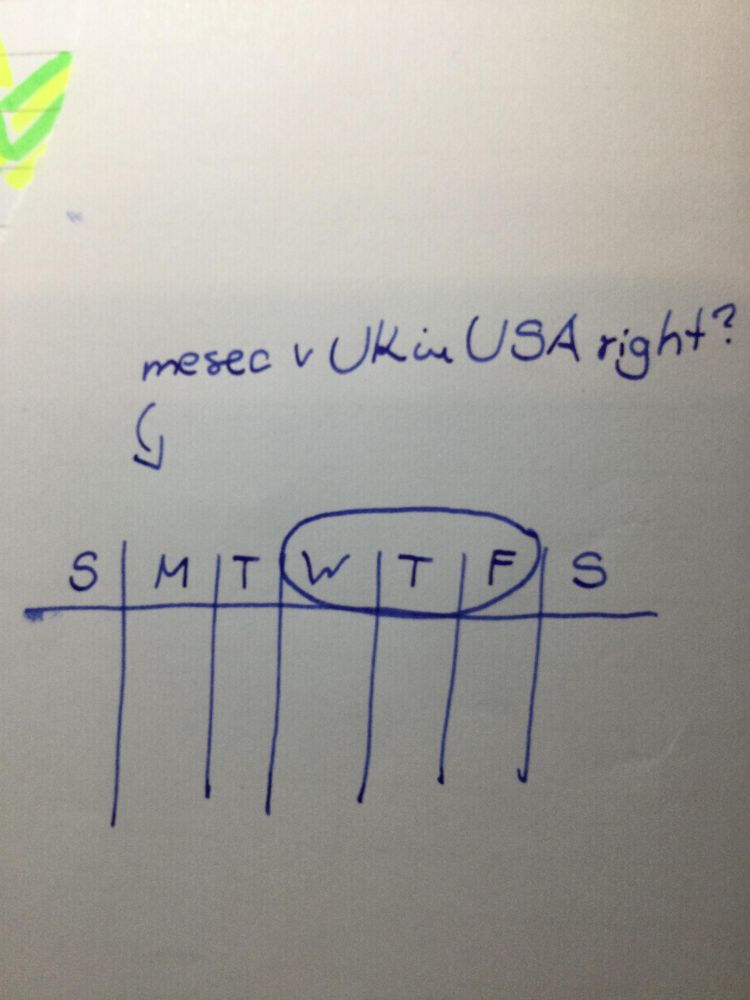 mesec v UK in USA right?
S M T W T F S